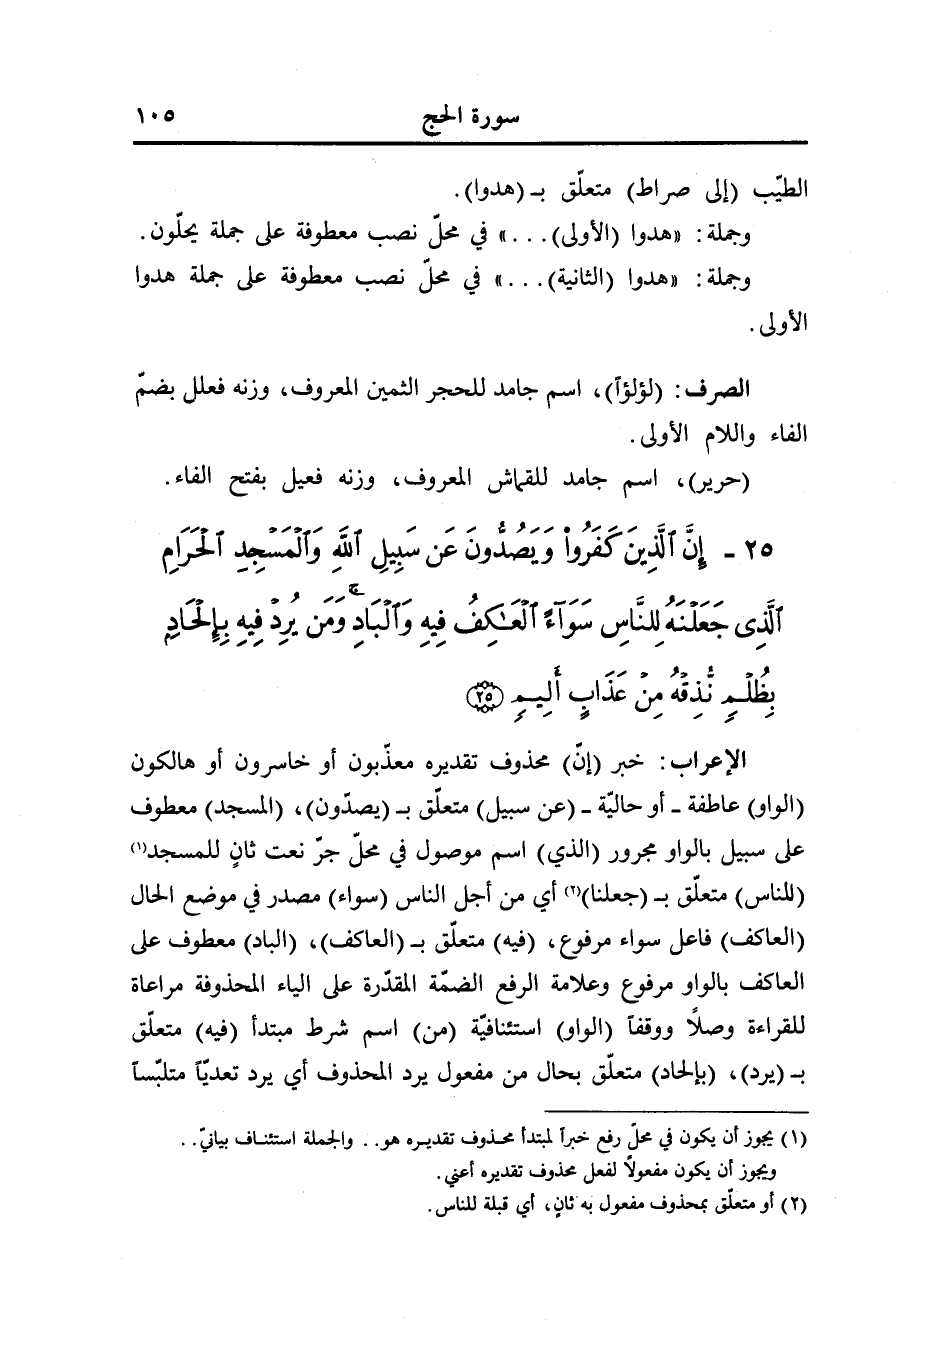 سورة الحج ١٠٥
الطيّب (إلى صراط) متعلّق بـ (هدوا).
وجملة: «هدوا (الأولى)...» في محلّ نصب معطوفة على جملة يحلّون.
وجملة: «هدوا (الثانية)...» في محلّ نصب معطوفة على جملة هدوا
الأولى.
الصرف: (لؤلؤاً)، اسم جامد للحجر الثمين المعروف، وزنه فعلل بضمّ
الفاء واللام الأولى.
(حرير)، اسم جامد للقماش المعروف، وزنه فعيل بفتح الفاء.
٢٥ - إِنَّ ٱلَّذِينَ كَفَرُوا۟ وَيَصُدُّونَ عَن سَبِيلِ ٱللَّهِ وَٱلْمَسْجِدِ ٱلْحَرَامِ
ٱلَّذِى جَعَلْنَـٰهُ لِلنَّاسِ سَوَآءً ٱلْعَـٰكِفُ فِيهِ وَٱلْبَادِ ۚ وَمَن يُرِدْ فِيهِ بِإِلْحَادٍۭ
بِظُلْمٍ نُّذِقْهُ مِنْ عَذَابٍ أَلِيمٍ (٢٥)
الإعراب: خبر (إنّ) محذوف تقديره معذّبون أو خاسرون أو هالكون
(الواو) عاطفة ـ أو حاليّة ـ (عن سبيل) متعلّق بـ (يصدّون)، (المسجد) معطوف
على سبيل بالواو مجرور (الذي) اسم موصول في محلّ جرّ نعت ثانٍ للمسجد(١)
(للناس) متعلّق بـ (جعلنا)(٢) أي من أجل الناس (سواء) مصدر في موضع الحال
(العاكف) فاعل سواء مرفوع، (فيه) متعلّق بـ (العاكف)، (الباد) معطوف على
العاكف بالواو مرفوع وعلامة الرفع الضمّة المقدّرة على الياء المحذوفة مراعاة
للقراءة وصلاً ووقفاً (الواو) استئنافيّة (من) اسم شرط مبتدأ (فيه) متعلّق
بـ (يرد)، (بإلحاد) متعلّق بحال من مفعول يرد المحذوف أي يرد تعديّاً متلبّساً
(١) يجوز أن يكون في محلّ رفع خبراً لمبتدأ محذوف تقديره هو.. والجملة استئناف بيانيّ..
ويجوز أن يكون مفعولاً لفعل محذوف تقديره أعني.
(٢) أو متعلّق بمحذوف مفعول به ثانٍ، أي قبلة للناس.